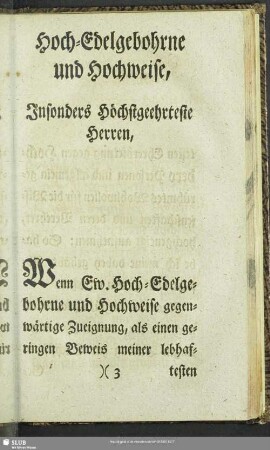 Hoch-Edelgebohrne
und Hochweise,
Insonders Höchstgeehrteste
Herren,
Wenn Ew. Hoch-Edelge-
bohrne und Hochweise gegen-
wärtige Zueignung, als einen ge-
ringen Beweis meiner lebhaf-
)( 3 testen
SLUB